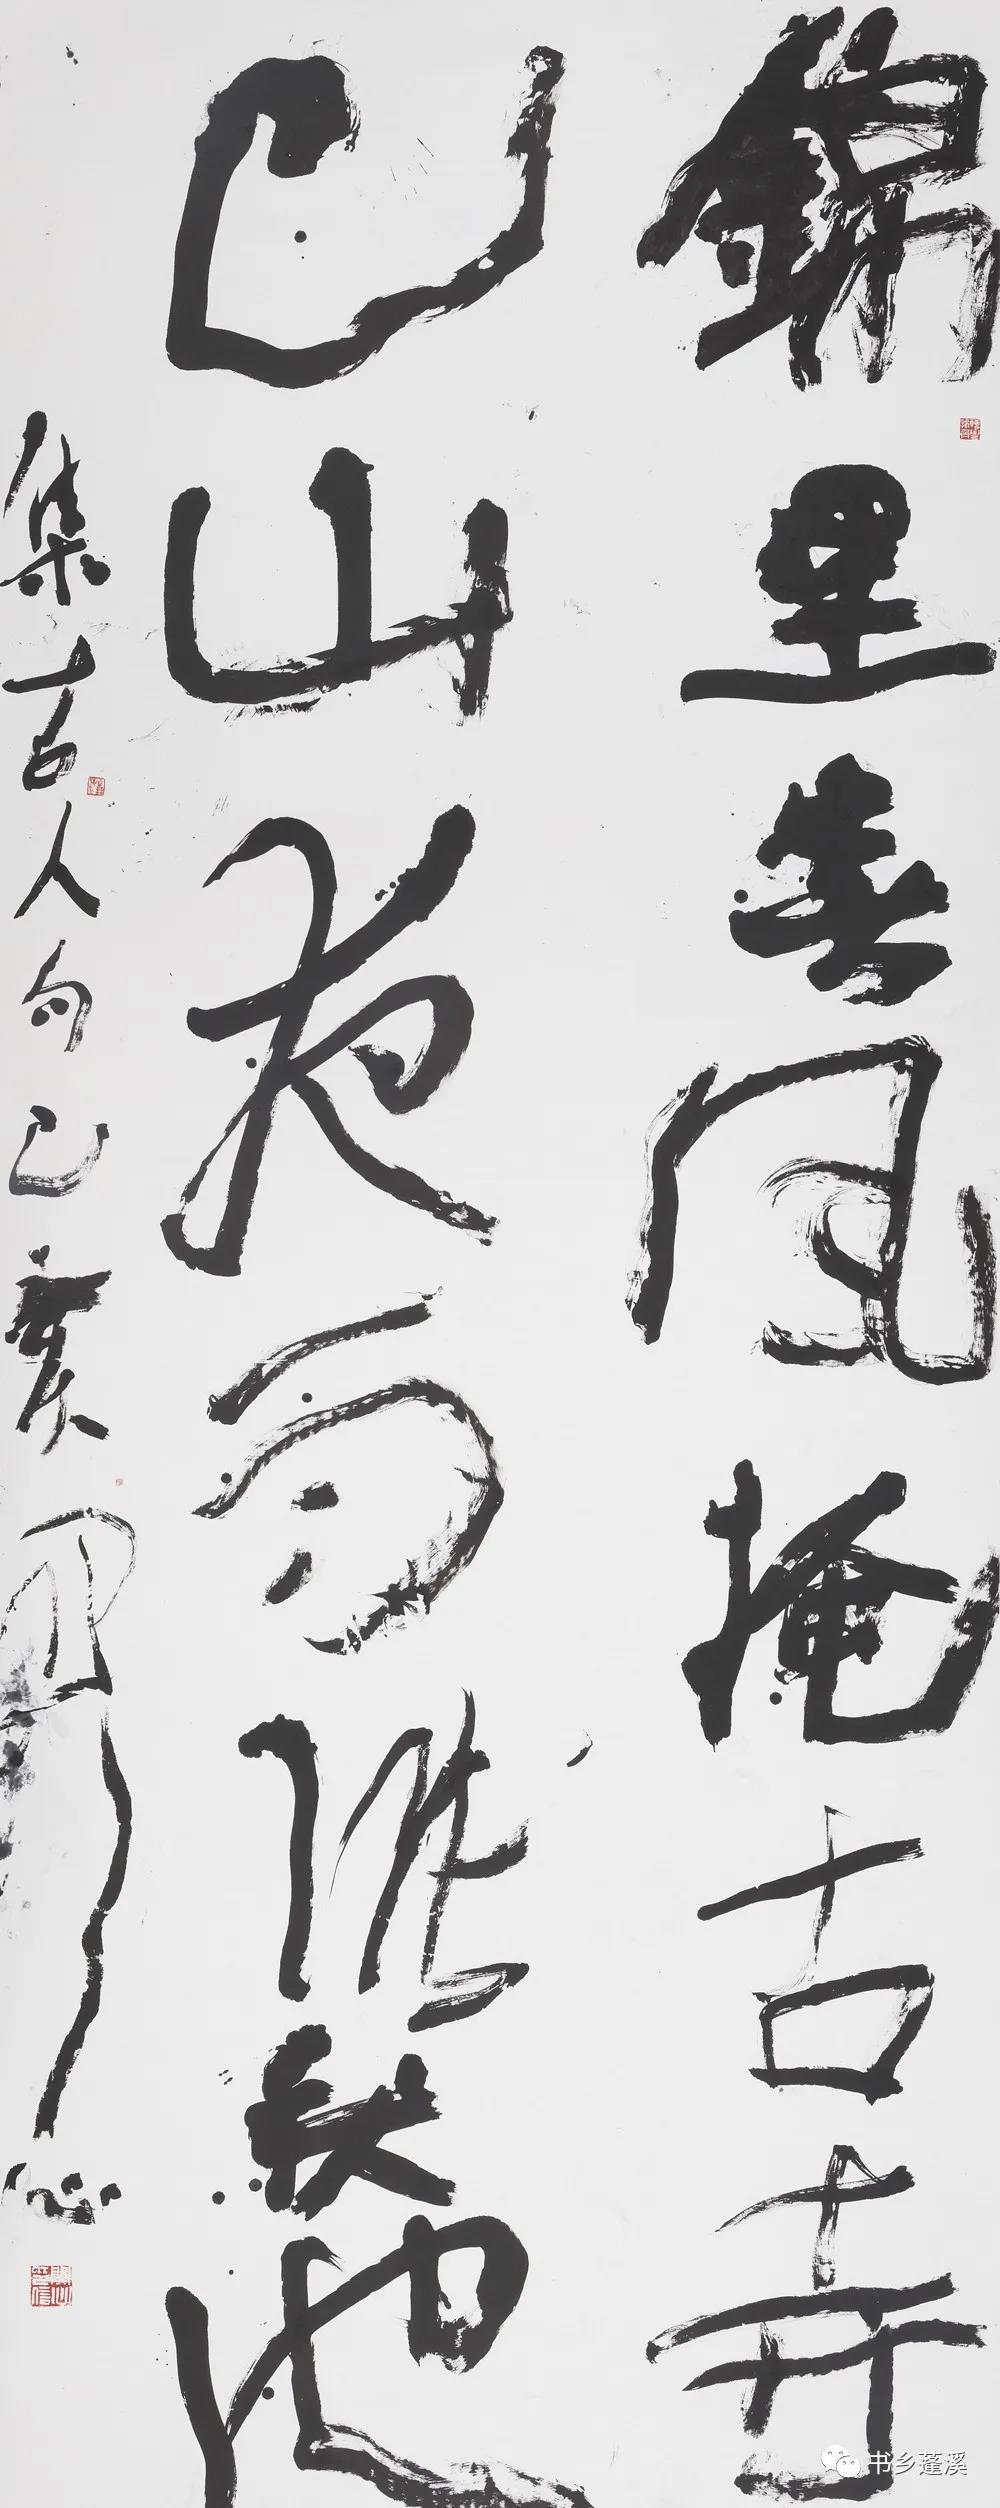 錦里春風掩古寺
巴山夜雨漲秋池
集古人句己亥
书乡蓬溪